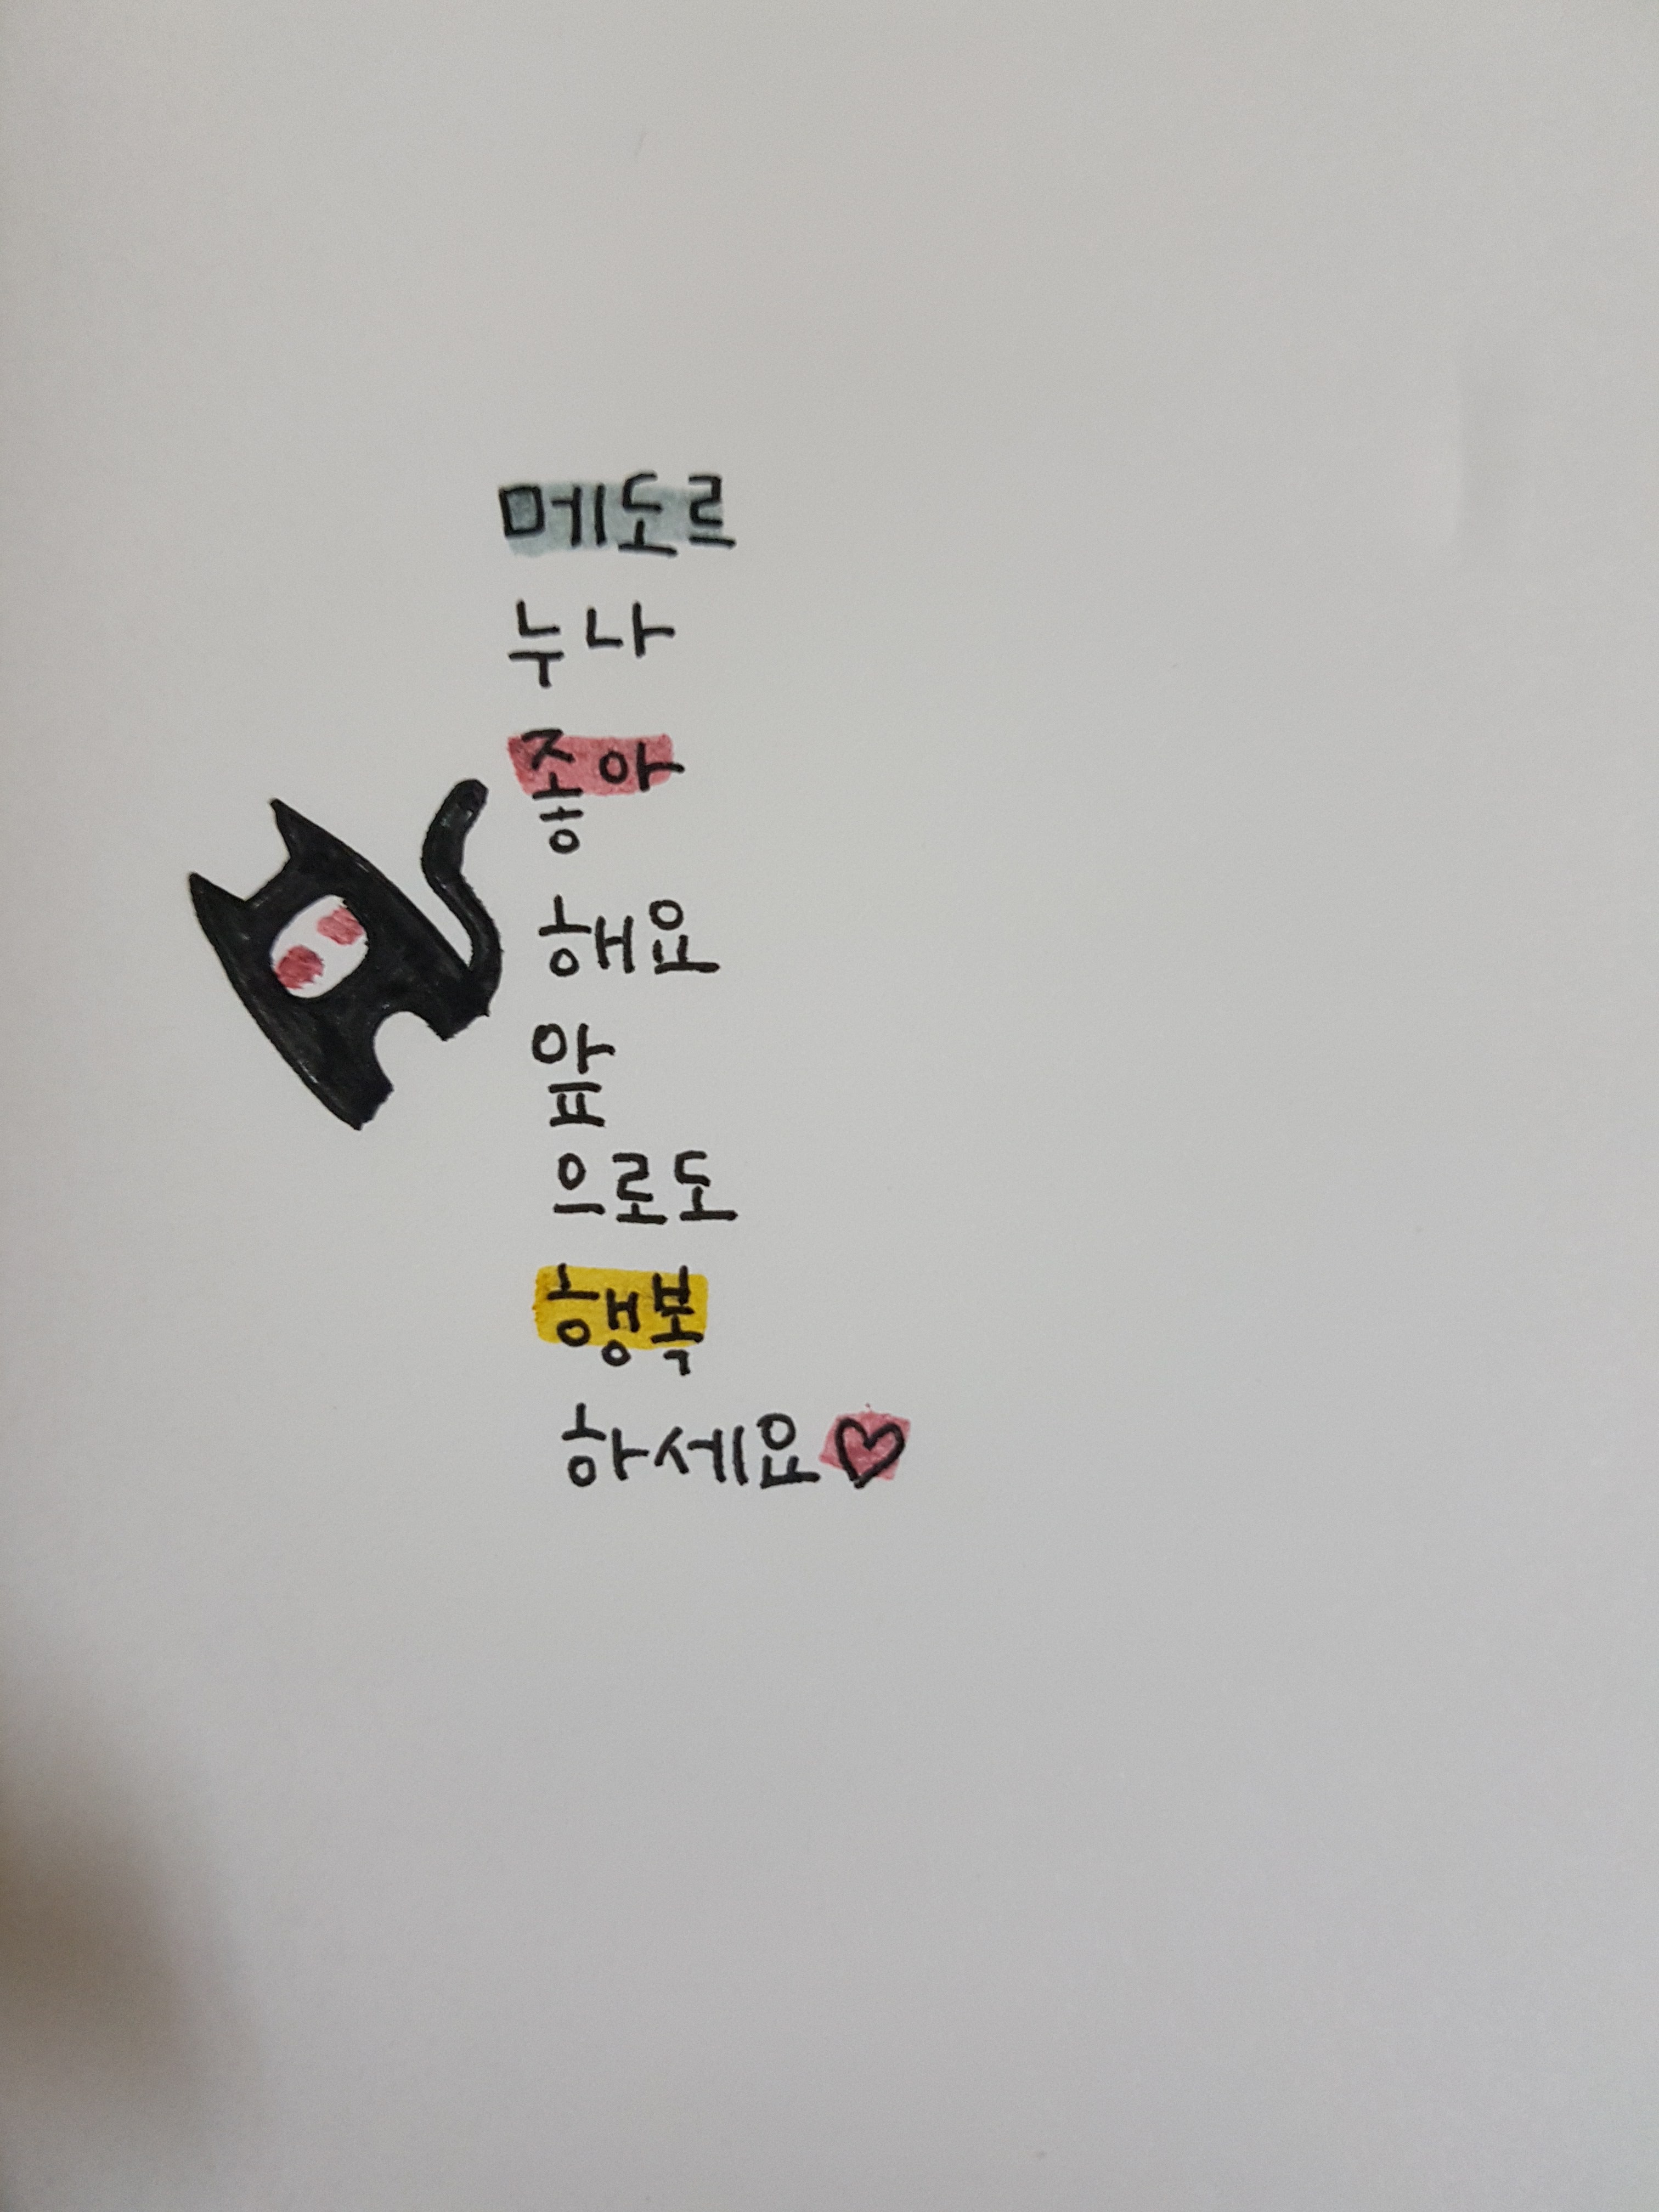 메도르
누나
좋아
해요
앞
으로도
행복
하세요♡